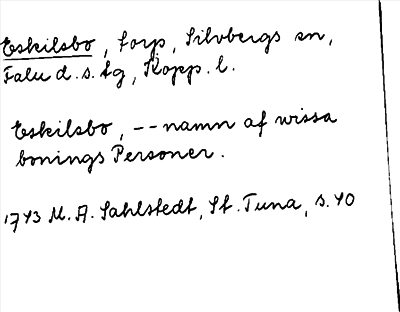 Eskilsbo, torp, Silvbergs sn,
Falu d.s. tg, Kopp. l.
Eskilsbo, -- namn af wissa
bonings Personer.
1743 M. A. Sahlstedt, St. Tuna, s. 40